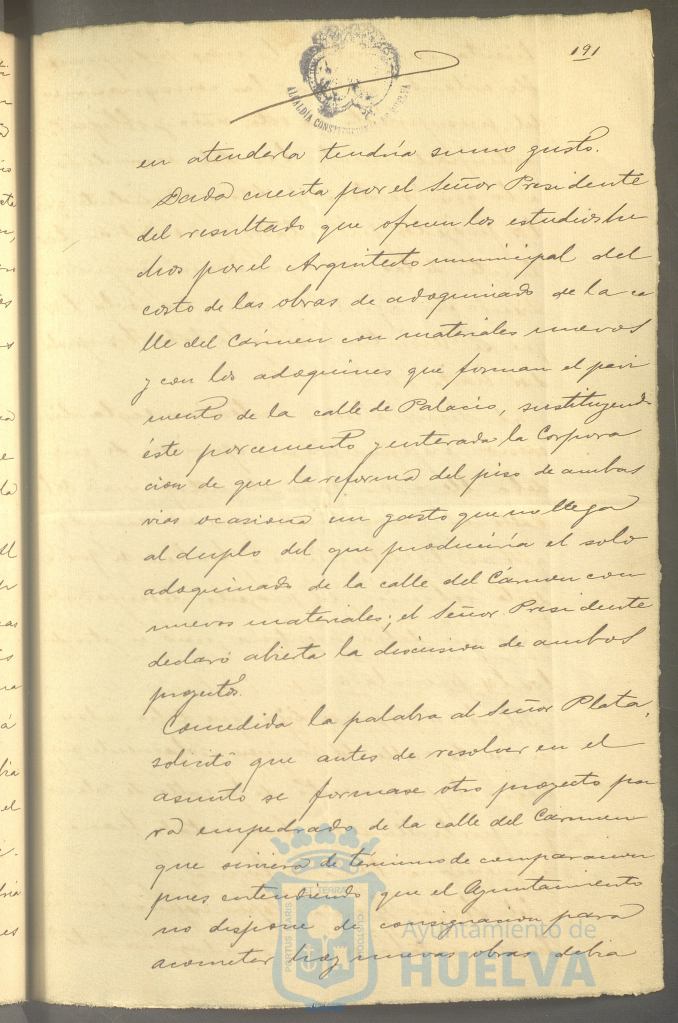 191
ALCALDÍA CONSTITUCIONAL DE HUELVA
en atenderla tendría sumo gusto.
Dada cuenta por el Señor Presidente
del resultado que ofrecen los estudios he
chos por el Arquitecto municipal del
costo de las obras de adoquinado de la ca
lle del Cármen con materiales nuevos
y con los adoquines que forman el pavi
mento de la calle de Palacio, sustituyendo
éste por cemento y enterada la Corpora
cion de que la reforma del piso de ambas
vias ocasiona un gasto que no llega
al duplo del que produciría el solo
adoquinado de la calle del Cármen con
nuevos materiales; el Señor Presidente
declaró abierta la discusion de ambos
proyectos.
Concedida la palabra al Señor Plata,
solicitó que antes de resolver en el
asunto se formase otro proyecto pa
ra empedrado de la calle del Cármen
que sirviera de término de comparacion
pues entendiendo que el Ayuntamiento
no dispone de consignacion para
acometer hoy nuevas obras debia
PORTUS MARIS ET TERRAE CUSTODIA
Ayuntamiento de
HUELVA